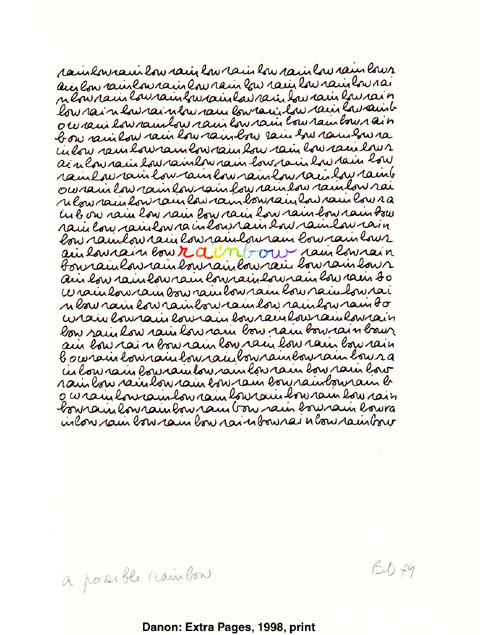 rainbowrainbowrainbowrainbowrainbowrainbowr
ainbowrainbowrainbowrainbowrainbowrainbowrai
nbowrainbowrainbowrainbowrainbowrainbowrain
bowrainbowrainbowrainbowrainbowrainbowrainb
owrainbowrainbowrainbowrainbowrainbowrain
bowrainbowrainbowrainbowrainbowrainbowra
inbowrainbowrainbowrainbowrainbowrainbowr
ainbowrainbowrainbowrainbowrainbowrainbow
rainbowrainbowrainbowrainbowrainbowrainb
owrainbowrainbowrainbowrainbowrainbowrai
nbowrainbowrainbowrainbowrainbowrainbowra
inbowrainbowrainbowrainbowrainbowrainbow
rainbowrainbowrainbowrainbowrainbowrain
bowrainbowrainbowrainbowrainbowrainbowr
ainbowrainbow rainbow rainbowrain
bowrainbowrainbowrainbowrainbowrainbowr
ainbowrainbowrainbowrainbowrainbowrainbo
wrainbowrainbowrainbowrainbowrainbowrai
nbowrainbowrainbowrainbowrainbowrainbo
wrainbowrainbowrainbowrainbowrainbowrain
bowrainbowrainbowrainbowrainbowrainbowr
ainbowrainbowrainbowrainbowrainbowrain
bowrainbowrainbowrainbowrainbowrainbowra
inbowrainbowrainbowrainbowrainbowrainbow
rainbowrainbowrainbowrainbowrainbowrainb
owrainbowrainbowrainbowrainbowrainbowrain
bowrainbowrainbowrainbowrainbowrainbowra
inbowrainbowrainbowrainbowrainbowrainbow
a possible rainbow
BD 79
Danon: Extra Pages, 1998, print